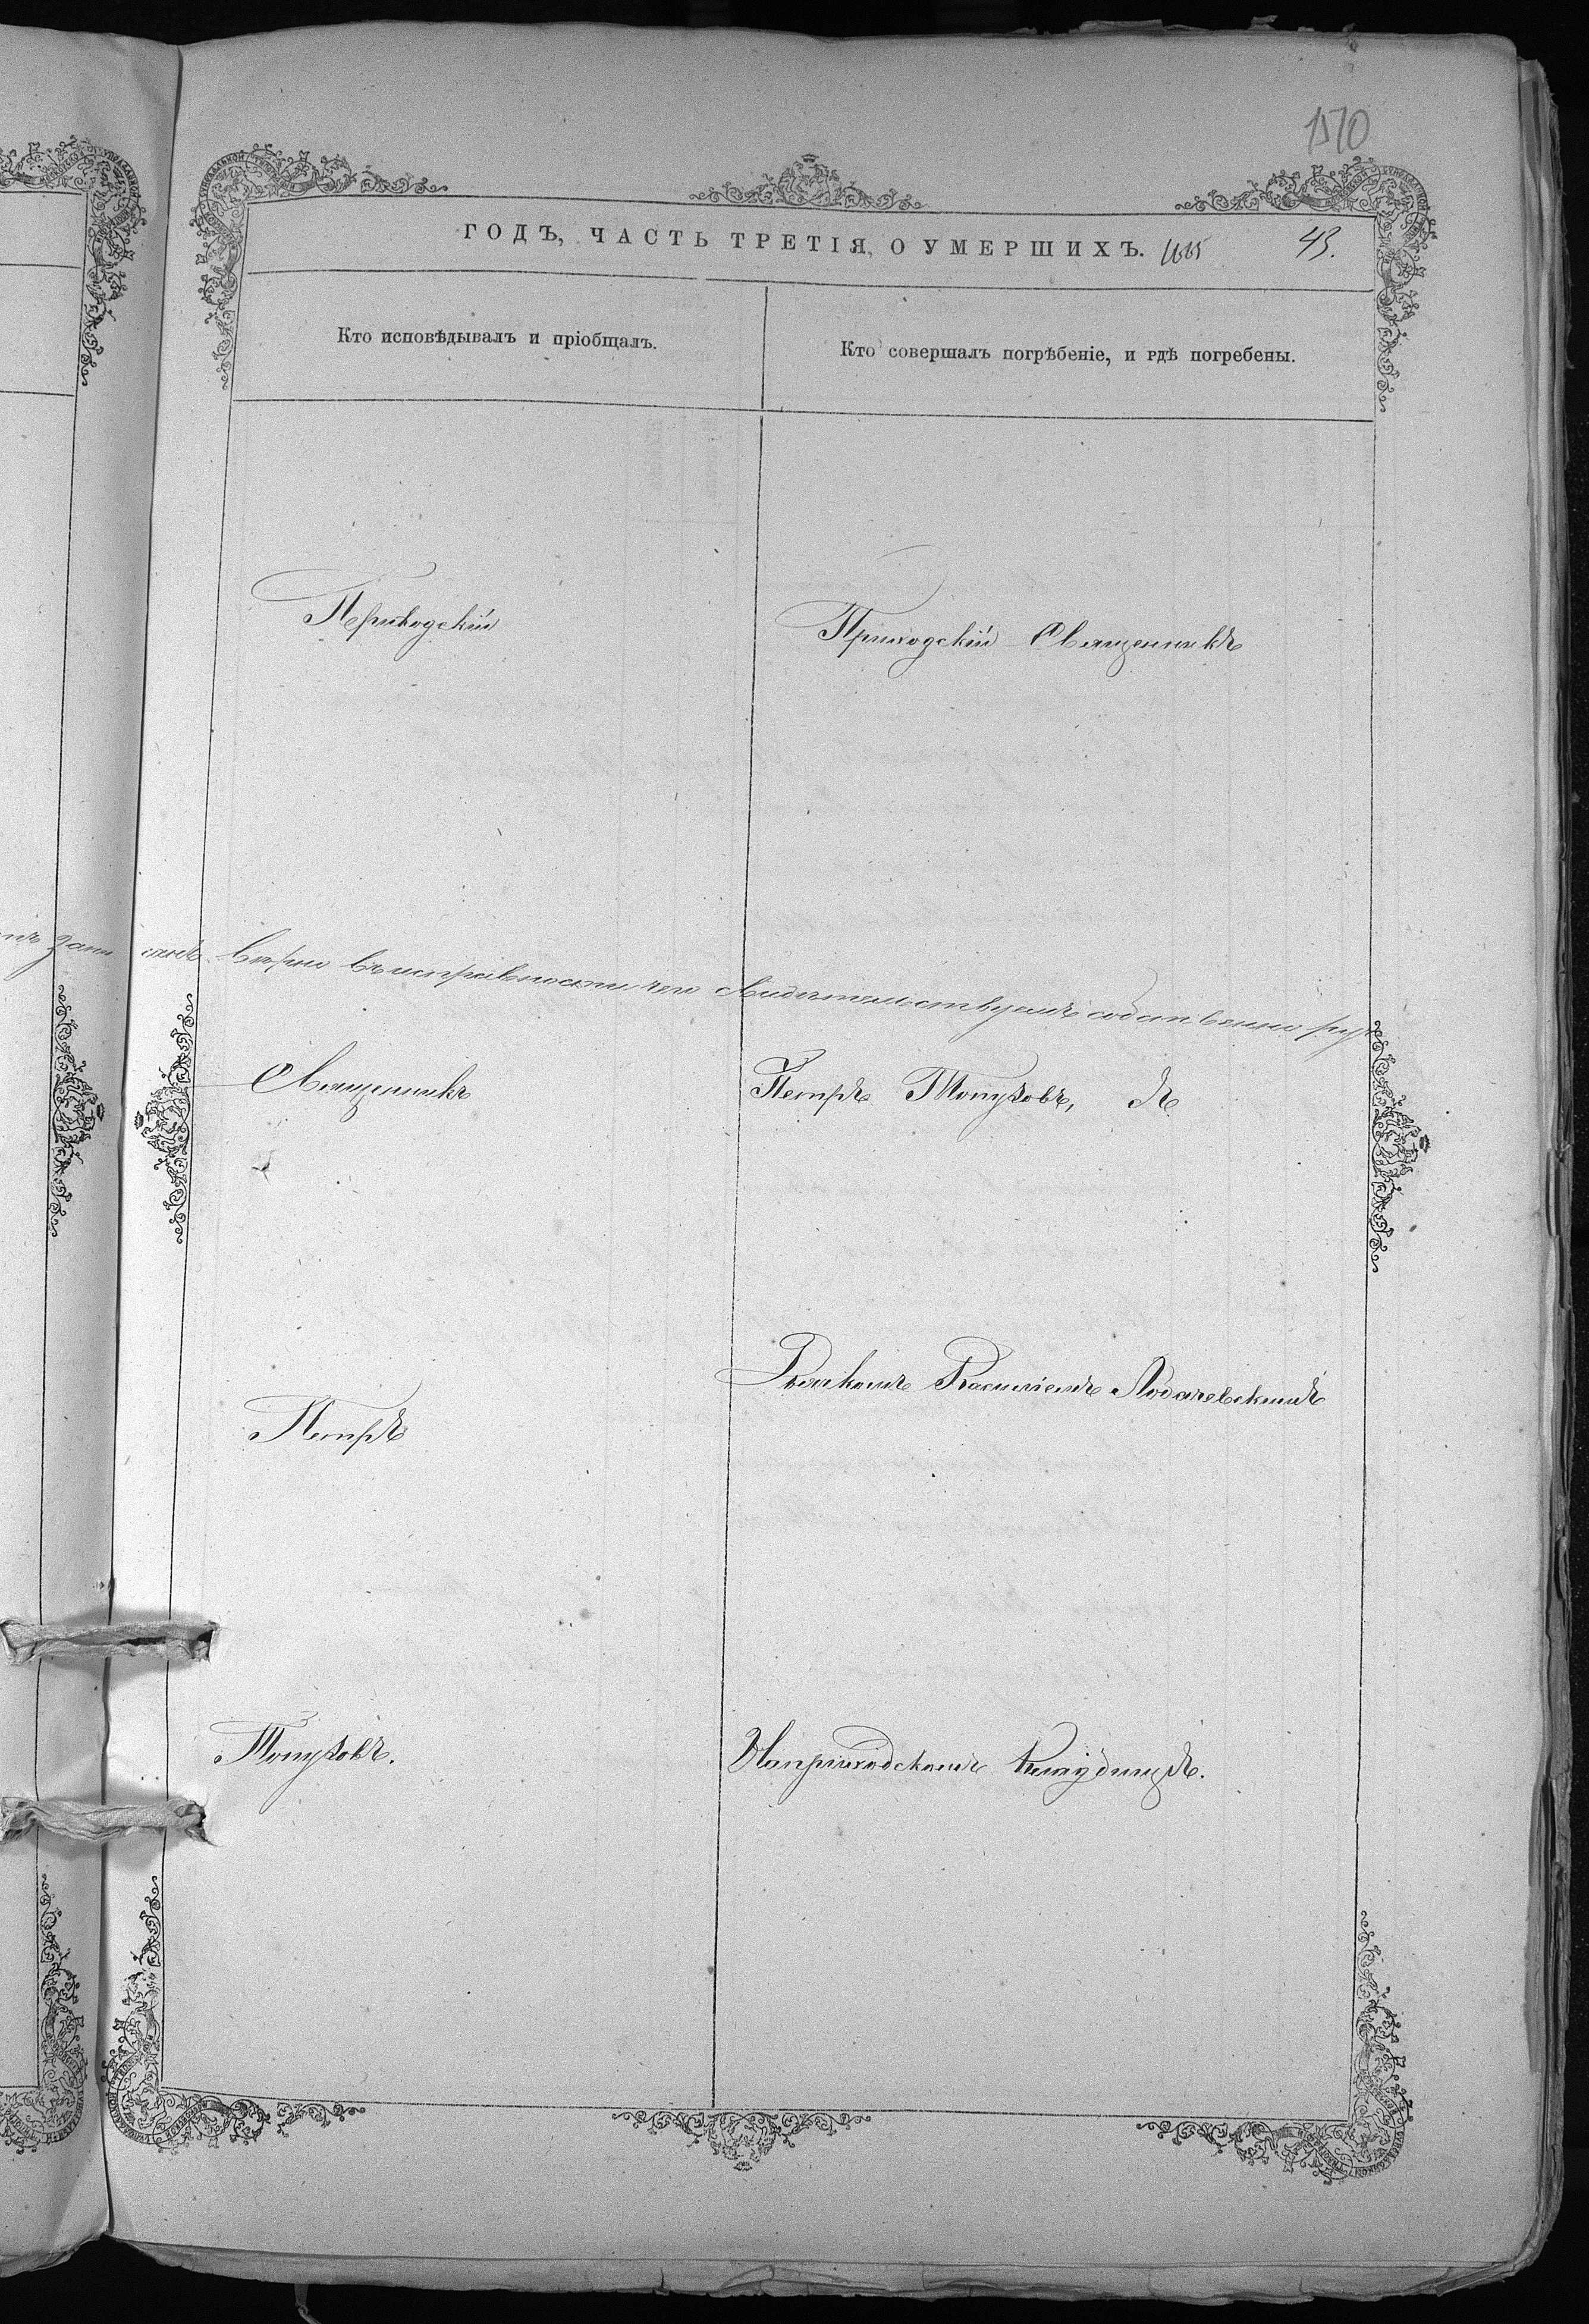 1570
ГОДЪ, ЧАСТЬ ТРЕТІЯ, О УМЕРШИХЪ. 43.
Кто исповѣдывалъ и пріобщалъ.
Кто совершалъ погрѣбеніе, и гдѣ погребены.
Приходскій
Приходскій Священникъ
вѣрно въ исправности чего свидѣтельствуемъ собственно рук
Священникъ
Петръ Топузовъ, съ
Дьякомъ Василіемъ
Петръ
Топузовъ.
На приходскомъ кладбищѣ.